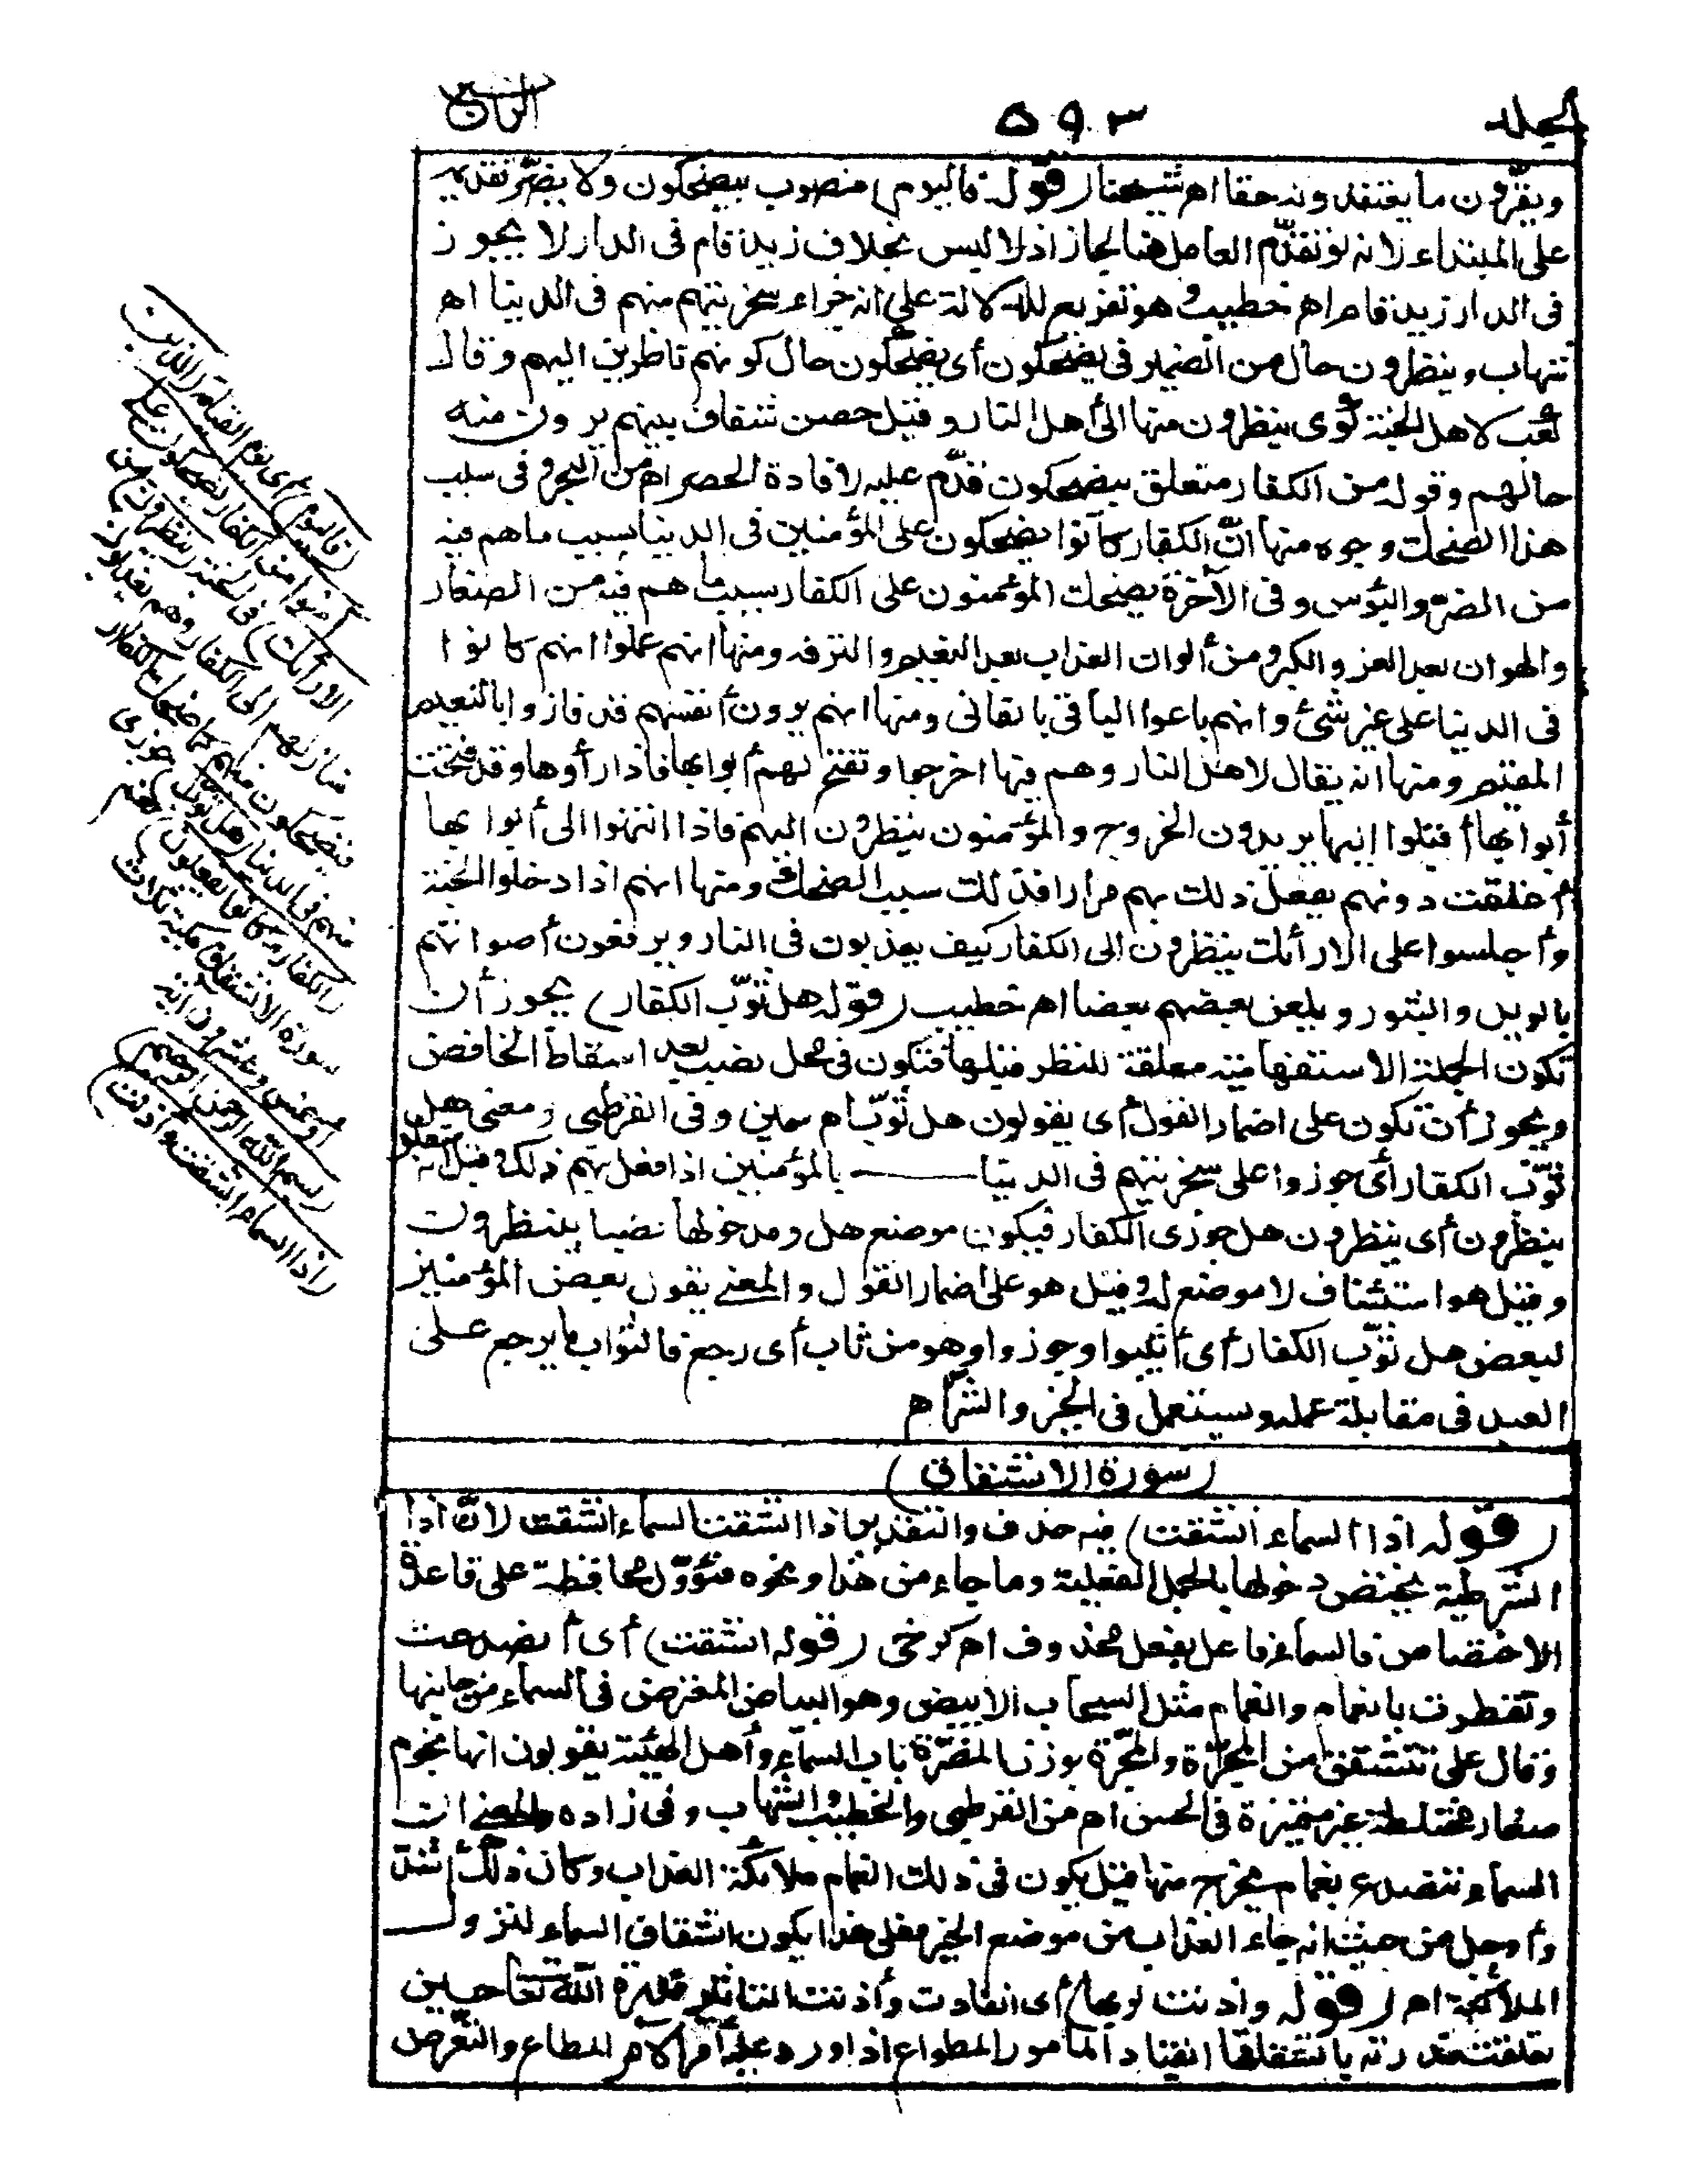 الجلد ٥٩٣ الثامن
ويقرّون ما يعتقدونه حقا اه شيخنا (قوله فاليوم) منصوب بيضحكون ولا يضرّ تقديمه
على المبتداء لانه لو تقدّم العامل هنا لجاز اذ لا لبس بخلاف زيد قام فى الدار لا يجوز
فى الدار زيد قام اه خطيب وهو تفريع للدلالة على انه جزاء سخريتهم منهم فى الدنيا اه
شهاب وينظرون حال من الضمير فى يضحكون أى يضحكون حال كونهم ناظرين اليهم وقال
كعب لاهل الجنة كوى ينظرون منها الى أهل النار وقيل حصن شفاف بينهم يرون منه
حالهم وقوله من الكفار متعلق بيضحكون قدّم عليه لافادة الحصر اه من البحر وفى سبب
هذا الضحك وجوه منها انّ الكفار كانوا يضحكون على المؤمنين فى الدنيا بسبب ما هم فيه
من الضرّ والبؤس وفى الآخرة يضحك المؤمنون على الكفار بسبب ما هم فيه من الصغار
والهوان بعد العز والكبر ومن ألوان العذاب بعد النعيم والترفه ومنها انهم علموا انهم كانوا
فى الدنيا على غير شئ وانهم باعوا الباقى بالفانى ومنها انهم يرون أنفسهم قد فازوا بالنعيم
المقيم ومنها انه يقال لاهل النار وهم فيها اخرجوا وتفتح لهم أبوابها فاذا رأوها وقد فتحت
أبوابها أقبلوا اليها يريدون الخروج والمؤمنون ينظرون اليهم فاذا انتهوا الى أبوابها
أغلقت دونهم يفعل ذلك بهم مرارا فذلك سبب الضحك ومنها انهم اذا دخلوا الجنة
وأجلسوا على الارائك ينظرون الى الكفار كيف يعذبون فى النار ويرفعون أصواتهم
بالويل والثبور ويلعن بعضهم بعضا اه خطيب (قوله هل ثوّب الكفار) يجوز أن
تكون الجملة الاستفهامية معلقة للنظر قبلها فتكون فى محل نصب بعد اسقاط الخافض
ويجوز أن تكون على اضمار القول أى يقولون هل ثوّب اه سمين وفى القرطبى ومعنى هل
ثوّب الكفار أى جوزوا على سخريتهم فى الدنيا بالمؤمنين اذا فعل بهم ذلك وقيل انه متعلق
ينظرون أى ينظرون هل جوزى الكفار فيكون موضع هل ومدخولها نصبا بينظرون
وقيل هو استئناف لا موضع له وقيل هو على اضمار القول والمعنى يقول بعض المؤمنين
لبعض هل ثوّب الكفار أى أثيبوا وجوزوا وهو من ثاب أى رجع فالثواب ما يرجع على
العبد فى مقابلة عمله ويستعمل فى الخير والشرّ اه
(سورة الانشقاق)
(قوله اذا السماء انشقت) فيه حذف والتقدير اذا انشقت السماء انشقت لانّ اذا
الشرطية يختص دخولها بالجمل الفعلية وما جاء من هذا ونحوه مؤوّل محافظة على قاعدة
الاختصاص فالسماء فاعل بفعل محذوف اه كرخى (قوله انشقت) أى أنصدعت
وتفطرت بالغمام والغمام مثل السحاب الابيض وهو البياض المعترض فى السماء من جانبها
وقال على تنشق من المجرّة والمجرّة بوزن المضرّة باب السماء وأهل الهيئة يقولون انها نجوم
صغار مختلطة غير متميزة فى الحس اه من القرطبى والخطيب والشهاب وفى زاده والمعنى ان
السماء تنصدع بغمام يخرج منها قيل يكون فى ذلك الغمام ملائكة العذاب وكان ذلك أشدّ
وأوجل من حيث انه جاء العذاب من موضع الخير فعلى هذا يكون انشقاق السماء لنزول
الملائكة اه (قوله وأذنت لربها) أى انقادت وأذنت لتأثير قدرة الله تعالى حين
تعلقت قدرته بانشقاقها انقياد المأمور المطواع اذا ورد عليه أمر الآمر المطاع والتعرّض
(فاليوم) أى يوم القيامة (الذين
آمنوا من الكفار يضحكون على
الارائك) فى الجنة (ينظرون) من
منازلهم الى الكفار وهم يعذبون
فيضحكون منهم كما ضحك الكفار
منهم فى الدنيا (هل ثوّب) جوزى
(الكفار ما كانوا يفعلون) نعم
سورة الانشقاق مكية ثلاث
أو خمس وعشرون آية
(بسم الله الرحمن الرحيم)
(اذا السماء انشقت وأذنت)